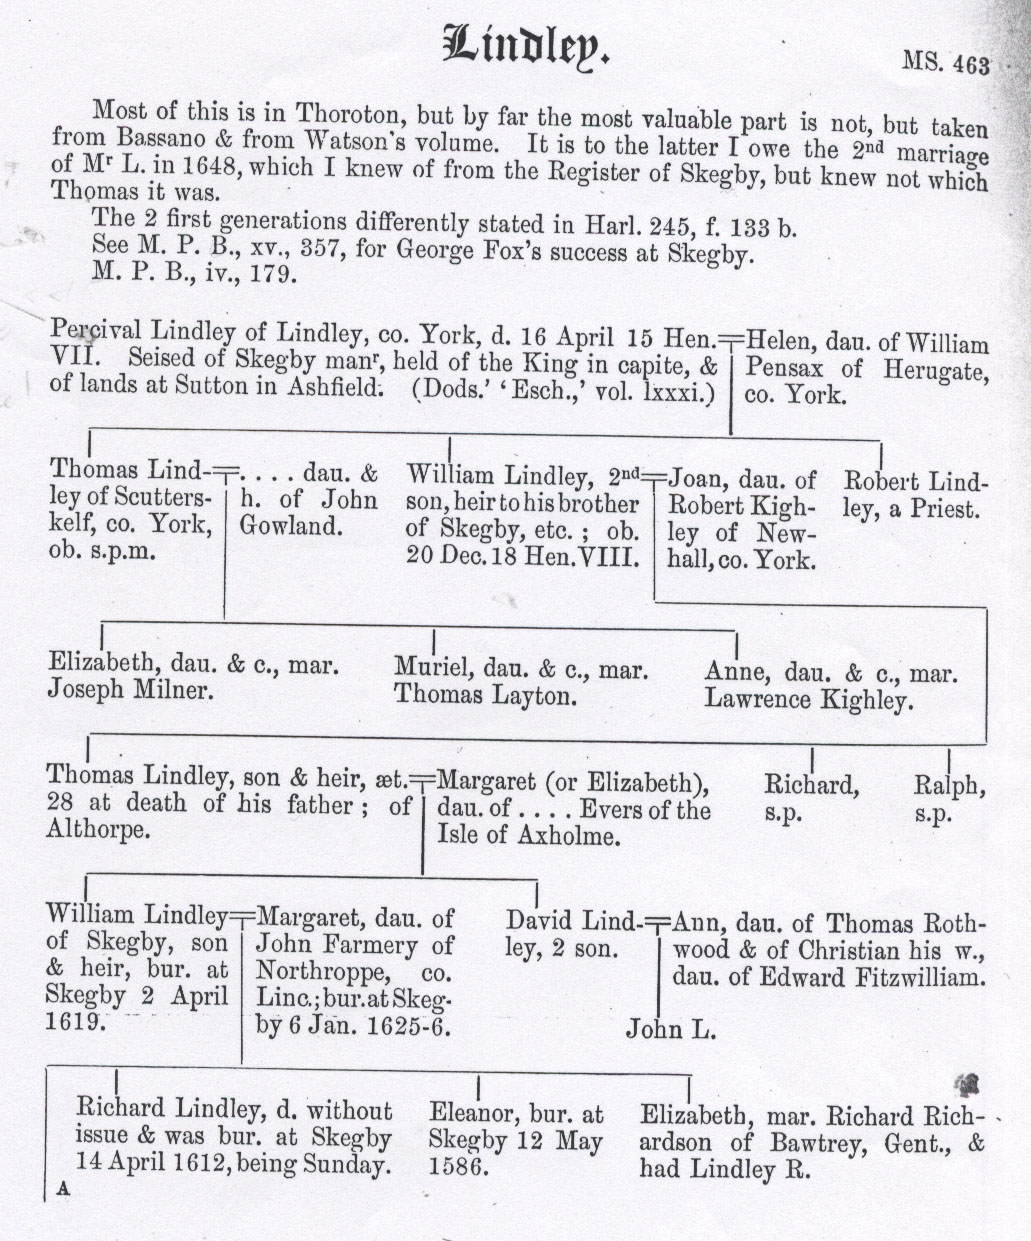 Lindley.
MS. 463
Most of this is in Thoroton, but by far the most valuable part is not, but taken
from Bassano & from Watson's volume. It is to the latter I owe the 2nd marriage
of Mr L. in 1648, which I knew of from the Register of Skegby, but knew not which
Thomas it was.
The 2 first generations differently stated in Harl. 245, f. 133 b.
See M. P. B., xv., 357, for George Fox's success at Skegby.
M. P. B., iv., 179.
Percival Lindley of Lindley, co. York, d. 16 April 15 Hen.
VII. Seised of Skegby manr, held of the King in capite, &
of lands at Sutton in Ashfield. (Dods.' 'Esch.,' vol. lxxxi.)
Helen, dau. of William
Pensax of Herugate,
co. York.
Thomas Lind-
ley of Scutters-
kelf, co. York,
ob. s.p.m.
. . . . dau. &
h. of John
Gowland.
William Lindley, 2nd
son, heir to his brother
of Skegby, etc. ; ob.
20 Dec. 18 Hen. VIII.
Joan, dau. of
Robert Kigh-
ley of New-
hall, co. York.
Robert Lind-
ley, a Priest.
Elizabeth, dau. & c., mar.
Joseph Milner.
Muriel, dau. & c., mar.
Thomas Layton.
Anne, dau. & c., mar.
Lawrence Kighley.
Thomas Lindley, son & heir, æt.
28 at death of his father ; of
Althorpe.
Margaret (or Elizabeth),
dau. of . . . . Evers of the
Isle of Axholme.
Richard,
s.p.
Ralph,
s.p.
William Lindley
of Skegby, son
& heir, bur. at
Skegby 2 April
1619.
Margaret, dau. of
John Farmery of
Northroppe, co.
Linc.; bur. at Skeg-
by 6 Jan. 1625-6.
David Lind-
ley, 2 son.
Ann, dau. of Thomas Roth-
wood & of Christian his w.,
dau. of Edward Fitzwilliam.
John L.
Richard Lindley, d. without
issue & was bur. at Skegby
14 April 1612, being Sunday.
Eleanor, bur. at
Skegby 12 May
1586.
Elizabeth, mar. Richard Rich-
ardson of Bawtrey, Gent., &
had Lindley R.
A